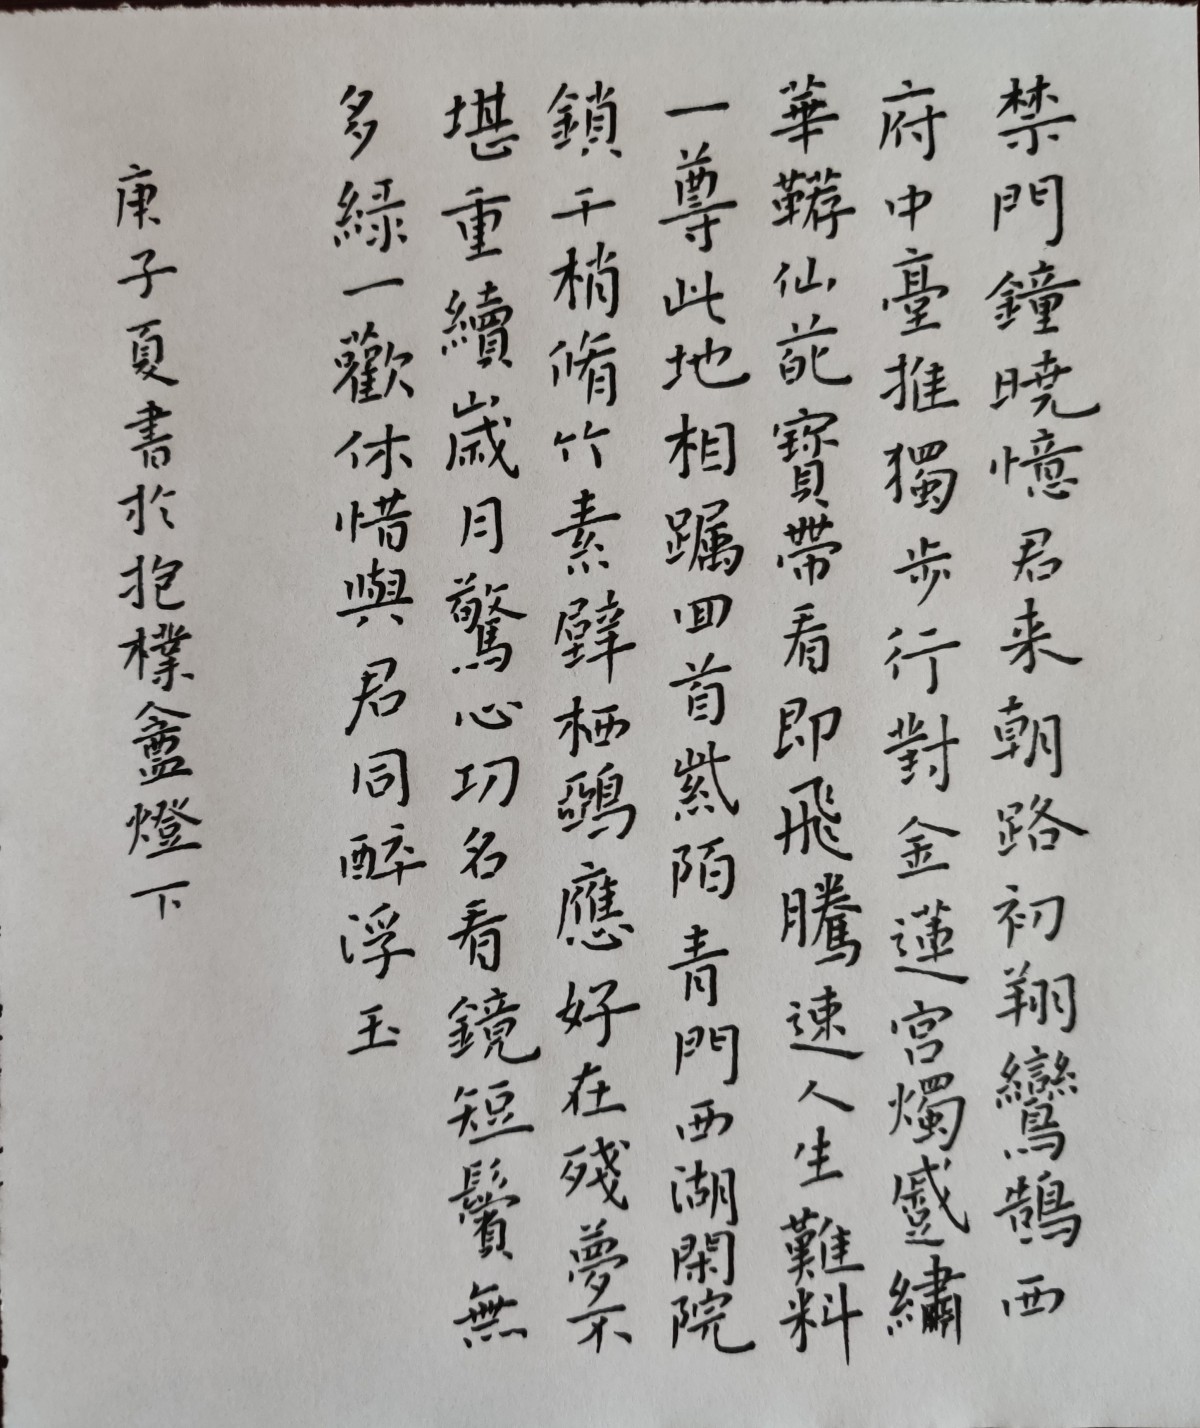 禁門鐘曉憶君来朝路初翔鸞鵠西
府中臺推獨步行對金蓮宮燭蹙繡
華韉仙葩寶帶看即飛騰速人生難料
一尊此地相躅回首紫陌青門西湖閑院
鎖千梢脩竹素壁栖鵶應好在殘夢不
堪重續嵗月驚心功名看鏡短鬢無
多綠一歡休惜與君同醉浮玉
庚子夏書於抱樸盦燈下